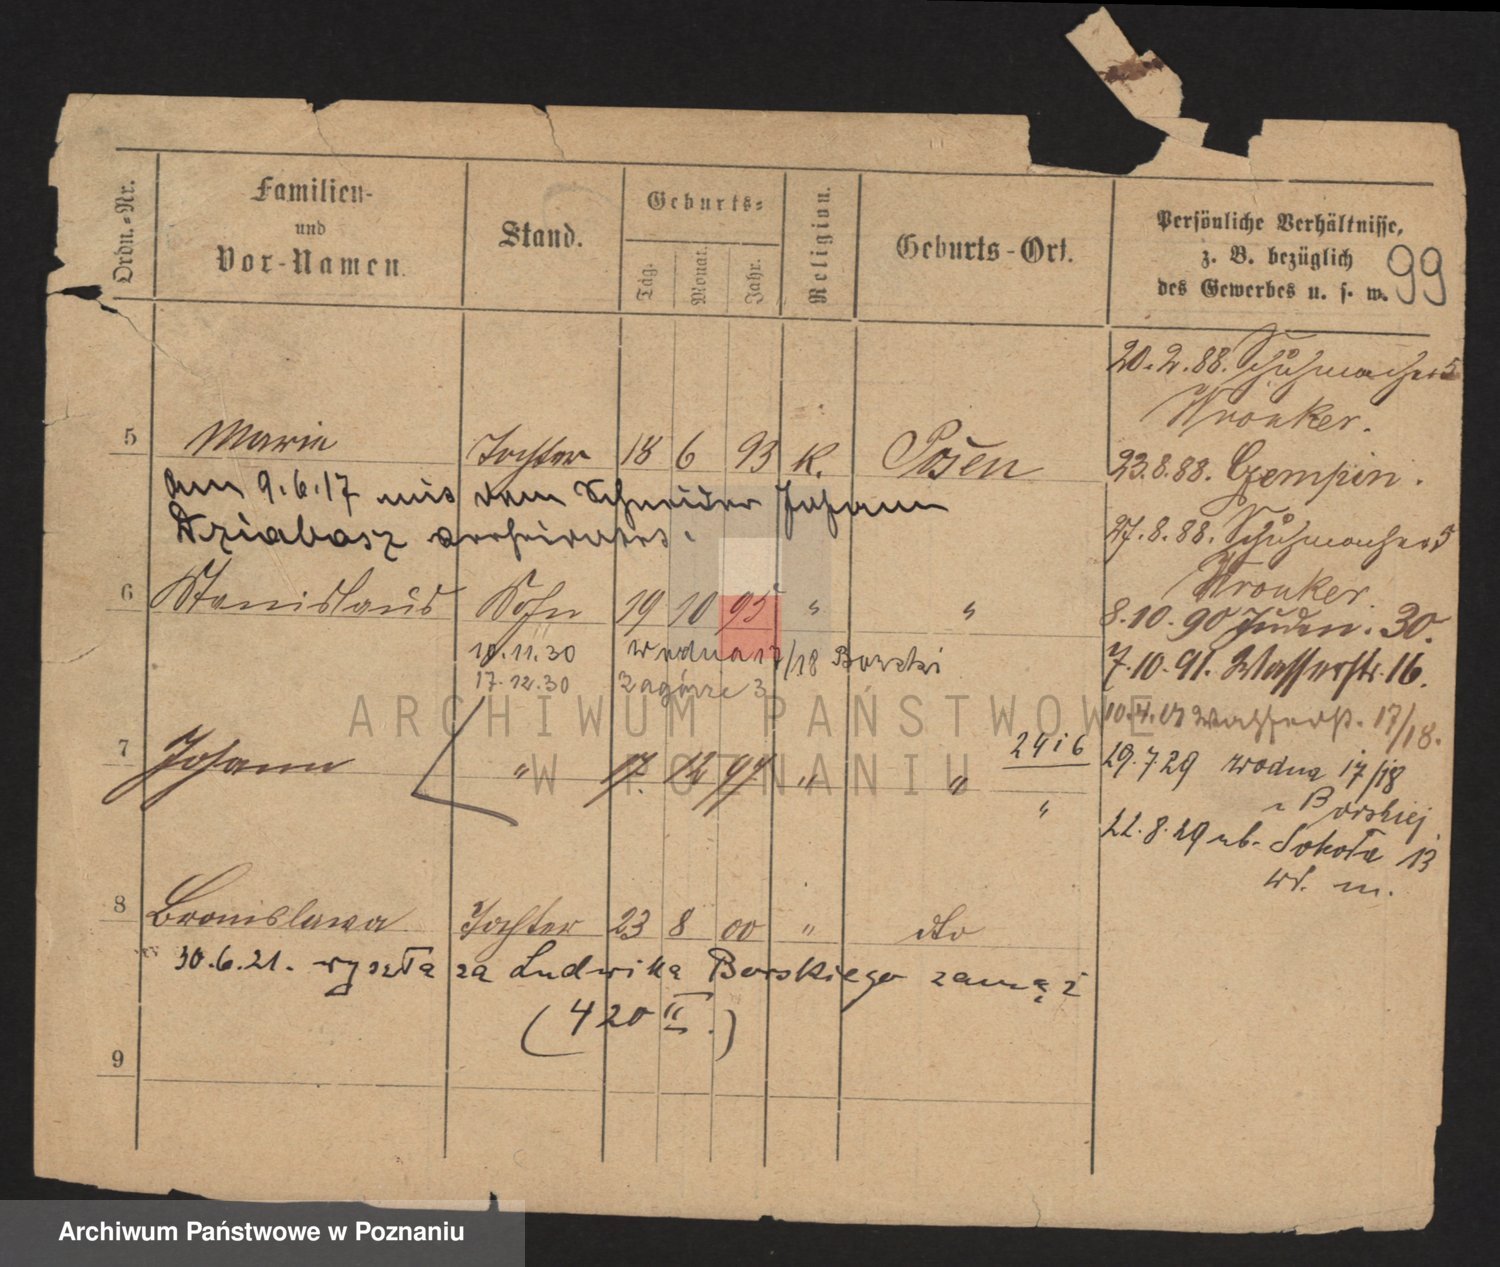 Ordn.-Nr.
Familien-
und
Vor-Namen.
Stand.
Geburts-
Tag.
Monat.
Jahr.
Religion.
Geburts-Ort.
Persönliche Verhältnisse,
z. B. bezüglich
des Gewerbes u. s. w.
99
20.2.88. Schuhmacher 5
Wronker.
5 Marie Tochter 18 6 93 K. Posen
23.8.88. Czempin.
am 9.6.17 mit dem Schneider Johann
Dziabasz verheiratet.
27.8.88. Schuhmacher 5
Wronker
6 Stanislaus Sohn 19 10 95 " "
8.10.90 Juden. 30.
10.11.30 Wodna 17/18 Borski
7.10.91. Wasserstr. 16.
17.12.30 Zagórze 3
10.4. Wasserst. 17/18.
2416
7 Johann " 17. 12 97 " "
29.7.29 Wodna 17/18
"
u Borskiej
22.8.29 ub. Sokoła 13
wł. m.
8 Bronislawa Tochter 23 8 00 " dto
30.6.21. wyszła za Ludwika Borskiego zamąż
(420 II.)
9
ARCHIWUM PAŃSTWOWE
W POZNANIU
Archiwum Państwowe w Poznaniu